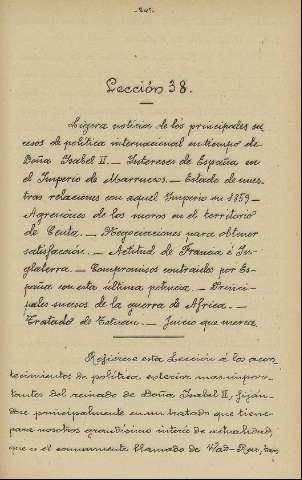 Lección 38.
Ligera noticia de los principales su
cesos de política internacional en tiempo de
Doña Isabel II. — Intereses de España en
el Imperio de Marruecos. — Estado de nues-
tras relaciones con aquel Imperio en 1859 —
Agresiones de los moros en el territorio
de Ceuta. — Negociaciones para obtener
satisfacción. — Actitud de Francia é In-
glaterra. — Compromisos contraidos por Es-
paña con esta última potencia. — Princi-
pales sucesos de la guerra de Africa. —
Tratado de Tetuan. — Juicio que merece.
Refiérese esta Lección á los acon-
tecimientos de política exterior mas impor-
tantes del reinado de Doña Isabel II, fiján-
dose principalmente en un tratado que tiene
para nosotros grandísimo interés de actualidad,
que es el comunmente llamado de Wad-Ras,